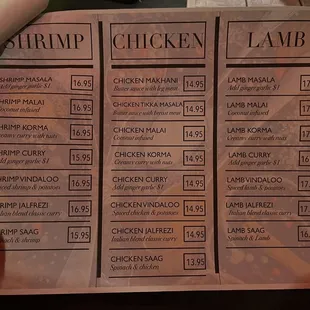 SHRIMP
SHRIMP MASALA 16.95
Add ginger garlic $1
SHRIMP MALAI 16.95
Coconut infused
SHRIMP KORMA 16.95
creamy curry with nuts
SHRIMP CURRY 15.95
Add ginger garlic $1
SHRIMP VINDALOO 16.95
Spiced shrimp & potatoes
SHRIMP JALFREZI 16.95
Italian blend classic curry
SHRIMP SAAG 15.95
Spinach & shrimp
CHICKEN
CHICKEN MAKHANI 14.95
Butter sauce with leg meat
CHICKEN TIKKA MASALA 14.95
Butter sauce with breast meat
CHICKEN MALAI 14.95
Coconut infused
CHICKEN KORMA 14.95
Creamy curry with nuts
CHICKEN CURRY 14.95
Add ginger garlic $1
CHICKEN VINDALOO 14.95
Spiced chicken & potatoes
CHICKEN JALFREZI 14.95
Italian blend classic curry
CHICKEN SAAG 13.95
Spinach & chicken
LAMB
LAMB MASALA 17
Add ginger garlic $1
LAMB MALAI 17
Coconut infused
LAMB KORMA 17
Creamy curry with nuts
LAMB CURRY
Add ginger garlic $1
LAMB VINDALOO 17
Spiced lamb & potatoes
LAMB JALFREZI 17
Italian blend classic curry
LAMB SAAG
Spinach & Lamb